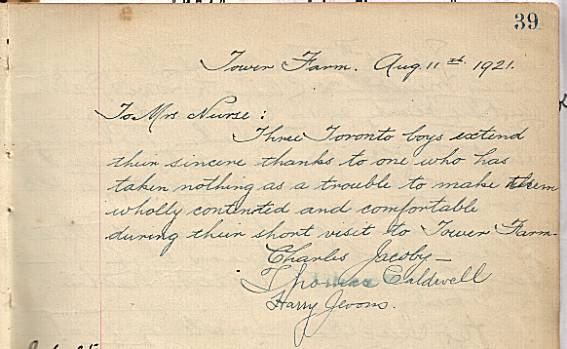 39
Tower Farm. Aug. 11th 1921.
To Mrs Nurse:
Three Toronto boys extend
their sincere thanks to one who has
taken nothing as a trouble to make them
wholly contented and comfortable
during their short visit to Tower Farm.
Charles Jacoby—
Thomas Caldwell
Harry Jevons.